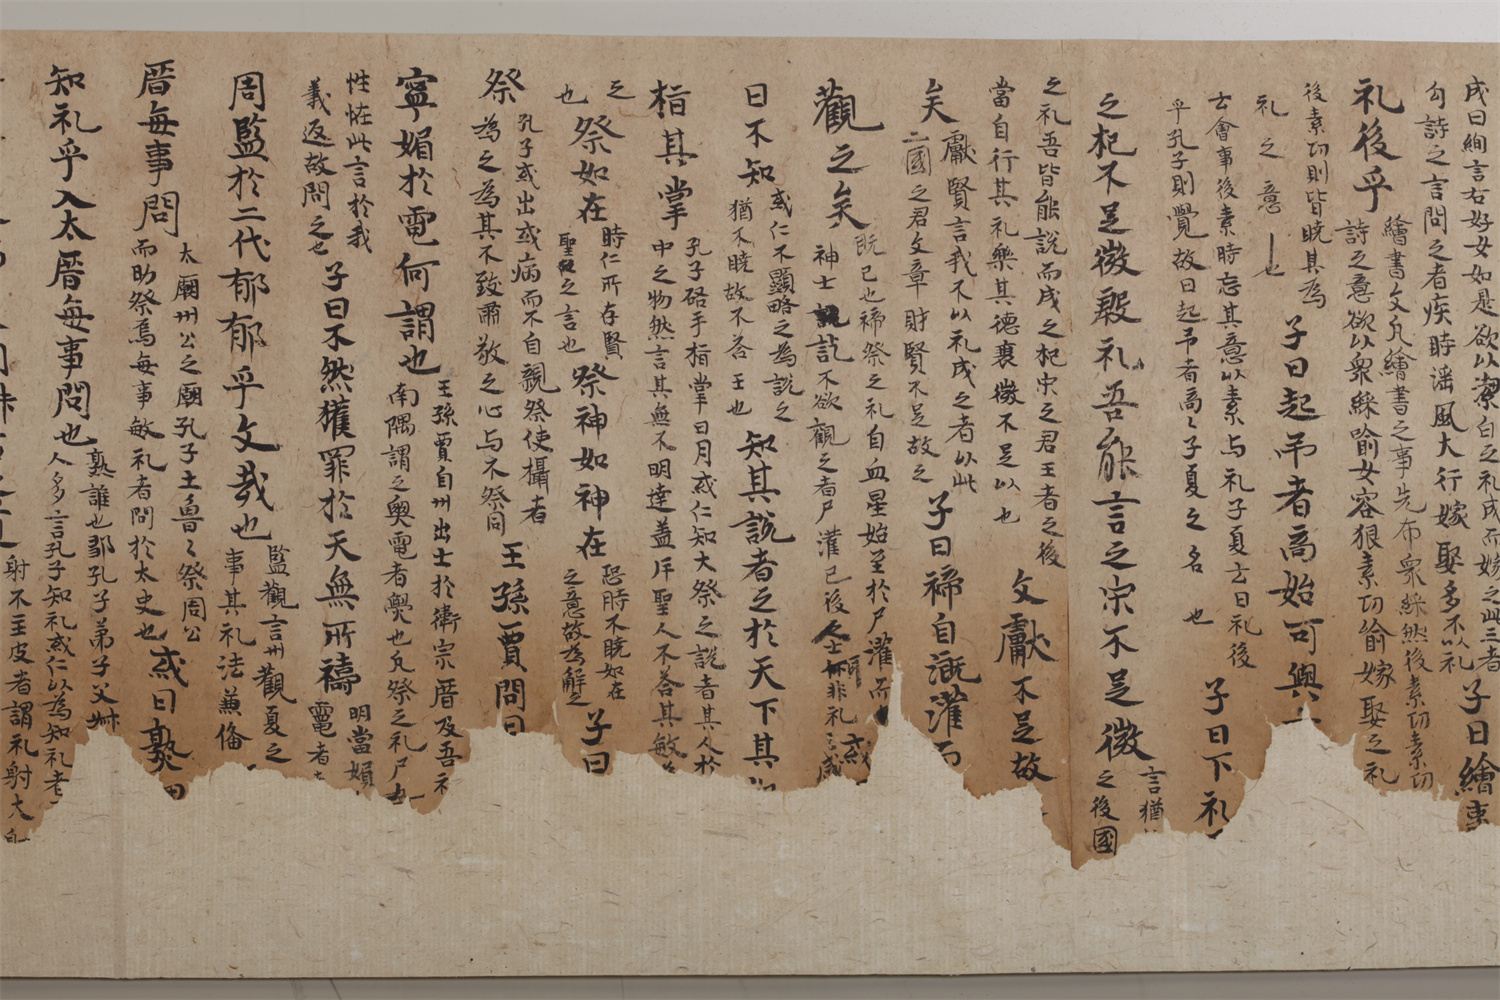 成曰絢言右好女如是欲以潔白之礼成而嫁之此三者
句詩之言問之者疾時淫風大行嫁娶多不以礼
子曰繪事
礼後乎
繪書文凡繪書之事先布衆綵然後素功素功
詩之意欲以衆綵喻女容狠素功喻嫁娶之礼
後素功則皆曉其為
礼之意也
子曰起予者商始可與
云會事後素時忘其意以素与礼子夏云曰礼後
乎孔子則覺故曰起予者商々子夏之名也
子曰下礼
之杞不足徵殷礼吾能言之宋不足徵
言猶
之後國
之礼吾皆能說而成之杞宋之君王者之後
當自行其礼樂其德襄徵不足以也
文獻不足故
矣
獻賢言我不以礼成之者以此
二國之君文章財賢不足故之
子曰禘自溉灌而
觀之矣
既已也禘祭之礼自血星始至於尸灌而
神士訖不欲觀之者尸灌已後非礼
曰不知
或仁不顯略之為說之
猶不曉故不答王也
知其說者之於天下其
指其掌
孔子硌手指掌曰月或仁知大祭之說者其人於
中之物然言其無不明達蓋斥聖人不答其敏
之
也
祭如在
時仁所存賢
聖之言也
祭神如神在
恐時不曉如在
之意故為解之
子曰
祭
孔子或出或病而不自親祭使攝者
為之為其不致肅敬之心与不祭同
王孫賈問曰
寧媚於竈何謂也
王孫賈自州出士於衛宗厝及吾
南隅謂之奧竈者爨也凡祭之礼尸
性恠此言於我
義返故問之也
子曰不然獲罪於天無所禱
明當媚
竈者
周監於二代郁郁乎文哉也
監觀言州觀夏之
事其礼法兼俻
厝每事問
太廟州公之廟孔子土魯々祭周公
而助祭焉每事敏礼者問於太史也
或曰孰
知礼乎入太厝每事問也
孰誰也鄹孔子弟子父
人多言孔子知礼或仁以為知礼者
射不主皮者謂礼射大